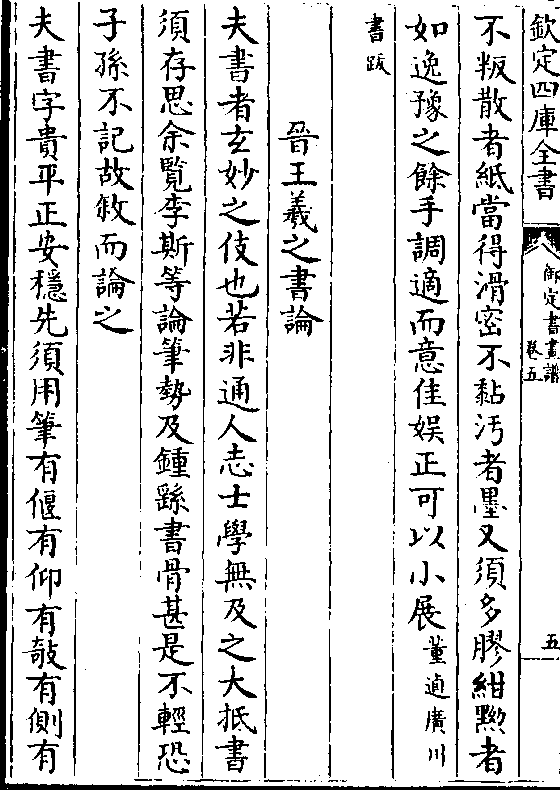 欽定四庫全書
御定書畫譜
卷五
五
不叛散者紙當得滑密不黏汚者墨又須多膠紺黝者
如逸豫之餘手調適而意佳娱正可以小展董逌廣川
書䟦
晉王羲之書論
夫書者玄妙之伎也若非通人志士學無及之大抵書
須存思余覽李斯等論筆勢及鍾繇書骨甚是不輕恐
子孫不記故敘而論之
夫書字貴平正安穩先須用筆有偃有仰有攲有側有